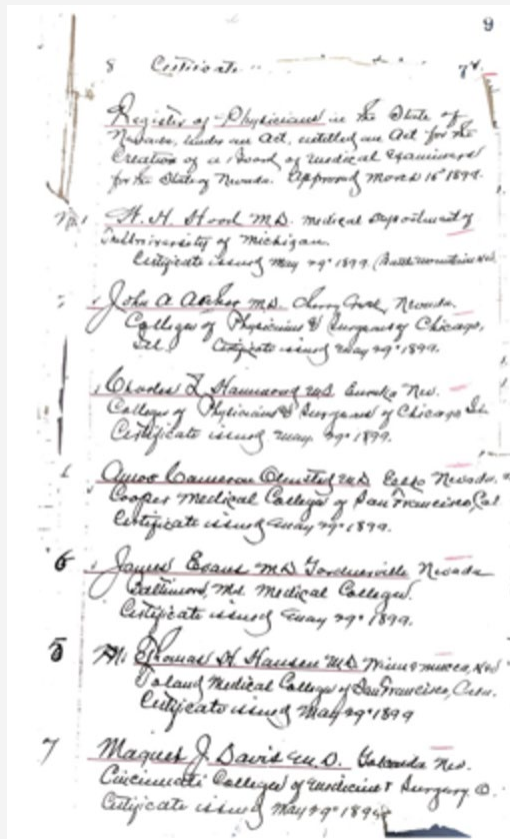 9
8 Certificate
Register of Physicians in the State of
Nevada, under an Act, entitled an Act for the
Creation of a Board of Medical Examiners
for the State of Nevada. Approved March 16th 1899.
No. 1 W. H. Hood M.D. Medical Department of
the University of Michigan.
Certificate issued May 29th 1899. (Battle Mountain Nev.
John A M.D. Nevada.
College of Physicians & Surgeons of Chicago,
Ill. Certificate issued May 29th 1899.
Charles L Hammond MD Eureka Nev.
College of Physicians & Surgeons of Chicago Ill.
Certificate issued May. 29th 1899.
Amos Cameron Olmsted M.D. Elko Nevada.
Cooper Medical College of San Francisco, Cal
Certificate issued May 29th 1899.
6 James Evans M.D. Gardnerville Nevada
Baltimore, Md. Medical College.
Certificate issued May 29th 1899.
5 Thomas H Hansen M.D. Winnemucca, Nev
Toland Medical College of San Francisco,
Certificate issued May 29th 1899
7 J. Davis M.D. Nev.
Cincinnati College of Medicine & Surgery O.
Certificate issued May 29th 1899